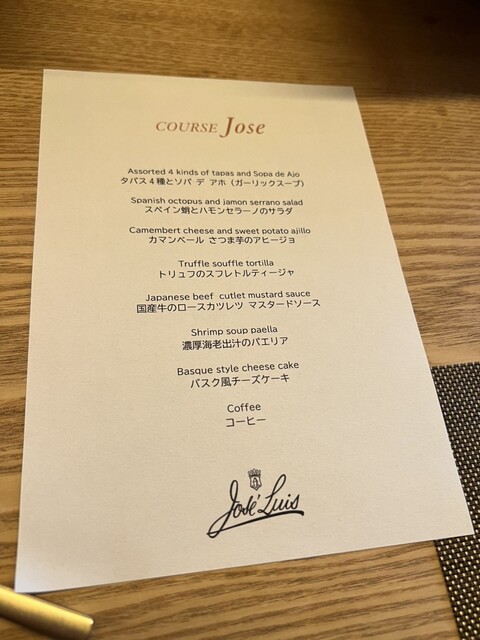 COURSE Jose
Assorted 4 kinds of tapas and Sopa de Ajo
タパス4種とソパ デ アホ（ガーリックスープ）
Spanish octopus and jamon serrano salad
スペイン蛸とハモンセラーノのサラダ
Camembert cheese and sweet potato ajillo
カマンベール さつま芋のアヒージョ
Truffle souffle tortilla
トリュフのスフレトルティージャ
Japanese beef cutlet mustard sauce
国産牛のロースカツレツ マスタードソース
Shrimp soup paella
濃厚海老出汁のパエリア
Basque style cheese cake
バスク風チーズケーキ
Coffee
コーヒー
José Luis